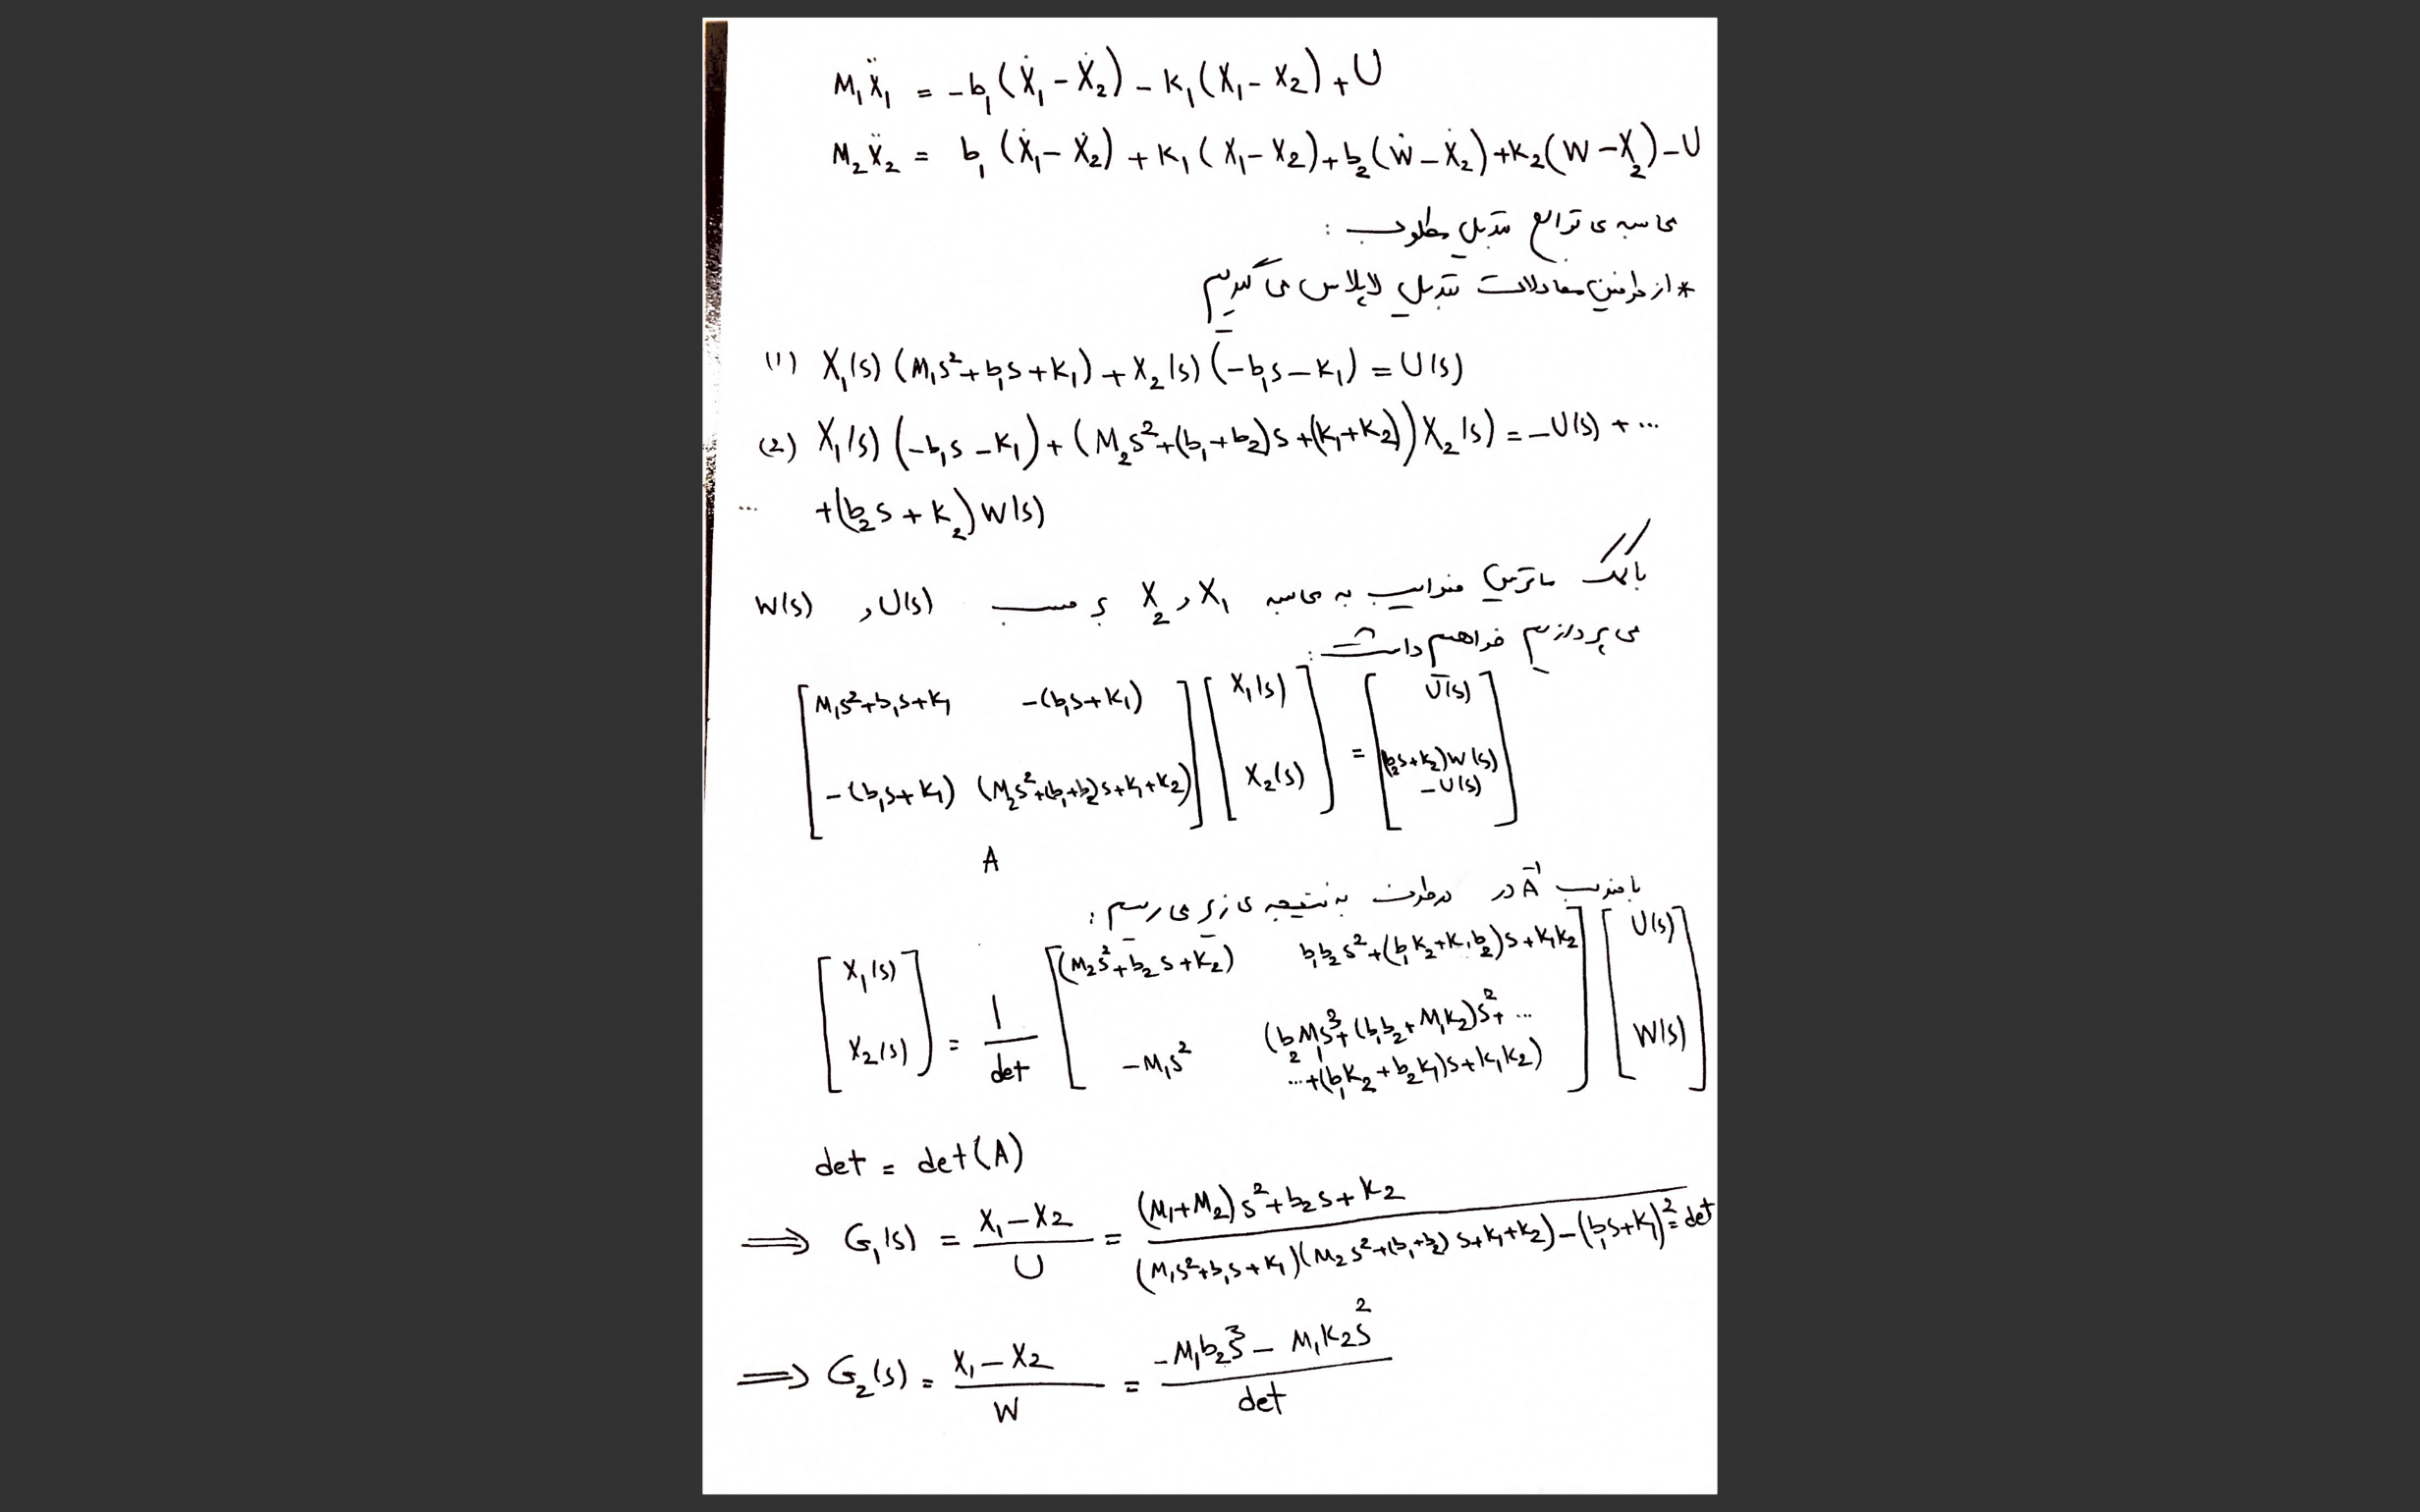 M₁Ẍ₁ = -b₁(Ẋ₁ - Ẋ₂) - K₁(X₁ - X₂) + U
M₂Ẍ₂ = b₁(Ẋ₁ - Ẋ₂) + K₁(X₁ - X₂) + b₂(Ẇ - Ẋ₂) + K₂(W - X₂) - U
محاسبه ی توابع تبدیل مطلوب :
* از طرفین معادلات تبدیل لاپلاس می گیریم
(1) X₁(s)(M₁s²+b₁s+K₁) + X₂(s)(-b₁s-K₁) = U(s)
(2) X₁(s)(-b₁s-K₁) + (M₂s²+(b₁+b₂)s+(K₁+K₂))X₂(s) = -U(s) + ...
... +(b₂s+K₂)W(s)
با کمک ماتریس ضرایب به محاسبه X₁ و X₂ بر حسب U(s) و W(s)
می پردازیم خواهیم داشت :
[M₁s²+b₁s+K₁ -(b₁s+K₁)] [X₁(s)] = [U(s)]
[-(b₁s+K₁) (M₂s²+(b₁+b₂)s+K₁+K₂)] [X₂(s)] [(b₂s+K₂)W(s) -U(s)]
A
با ضرب A⁻¹ در طرفین به نتیجه ی زیر می رسیم :
[X₁(s)] = 1/det [(M₂s²+b₂s+K₂) b₁b₂s²+(b₁K₂+K₁b₂)s+K₁K₂] [U(s)]
[X₂(s)] [-M₁s² (b₂M₁s³+(b₁b₂+M₁K₂)s²+... ...+(b₁K₂+b₂K₁)s+K₁K₂)] [W(s)]
det = det(A)
⟹ G₁(s) = (X₁-X₂)/U = ((M₁+M₂)s²+b₂s+K₂)/((M₁s²+b₁s+K₁)(M₂s²+(b₁+b₂)s+K₁+K₂)-(b₁s+K₁)²=det
⟹ G₂(s) = (X₁-X₂)/W = (-M₁b₂s³ - M₁K₂s²)/det